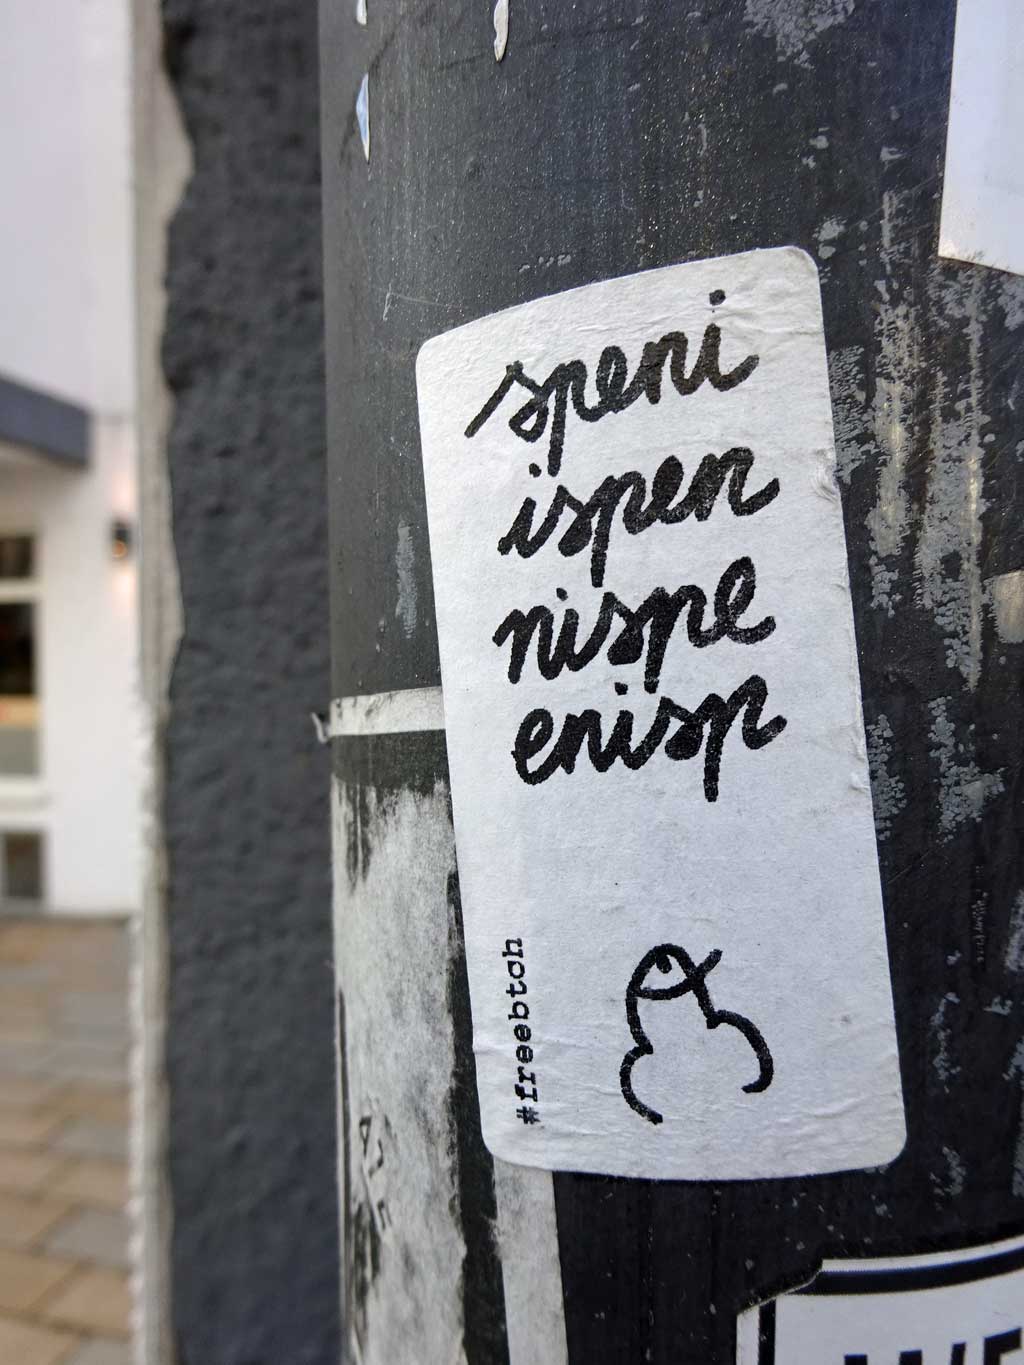 speni
ispen
nispe
enisp
#freebtoh